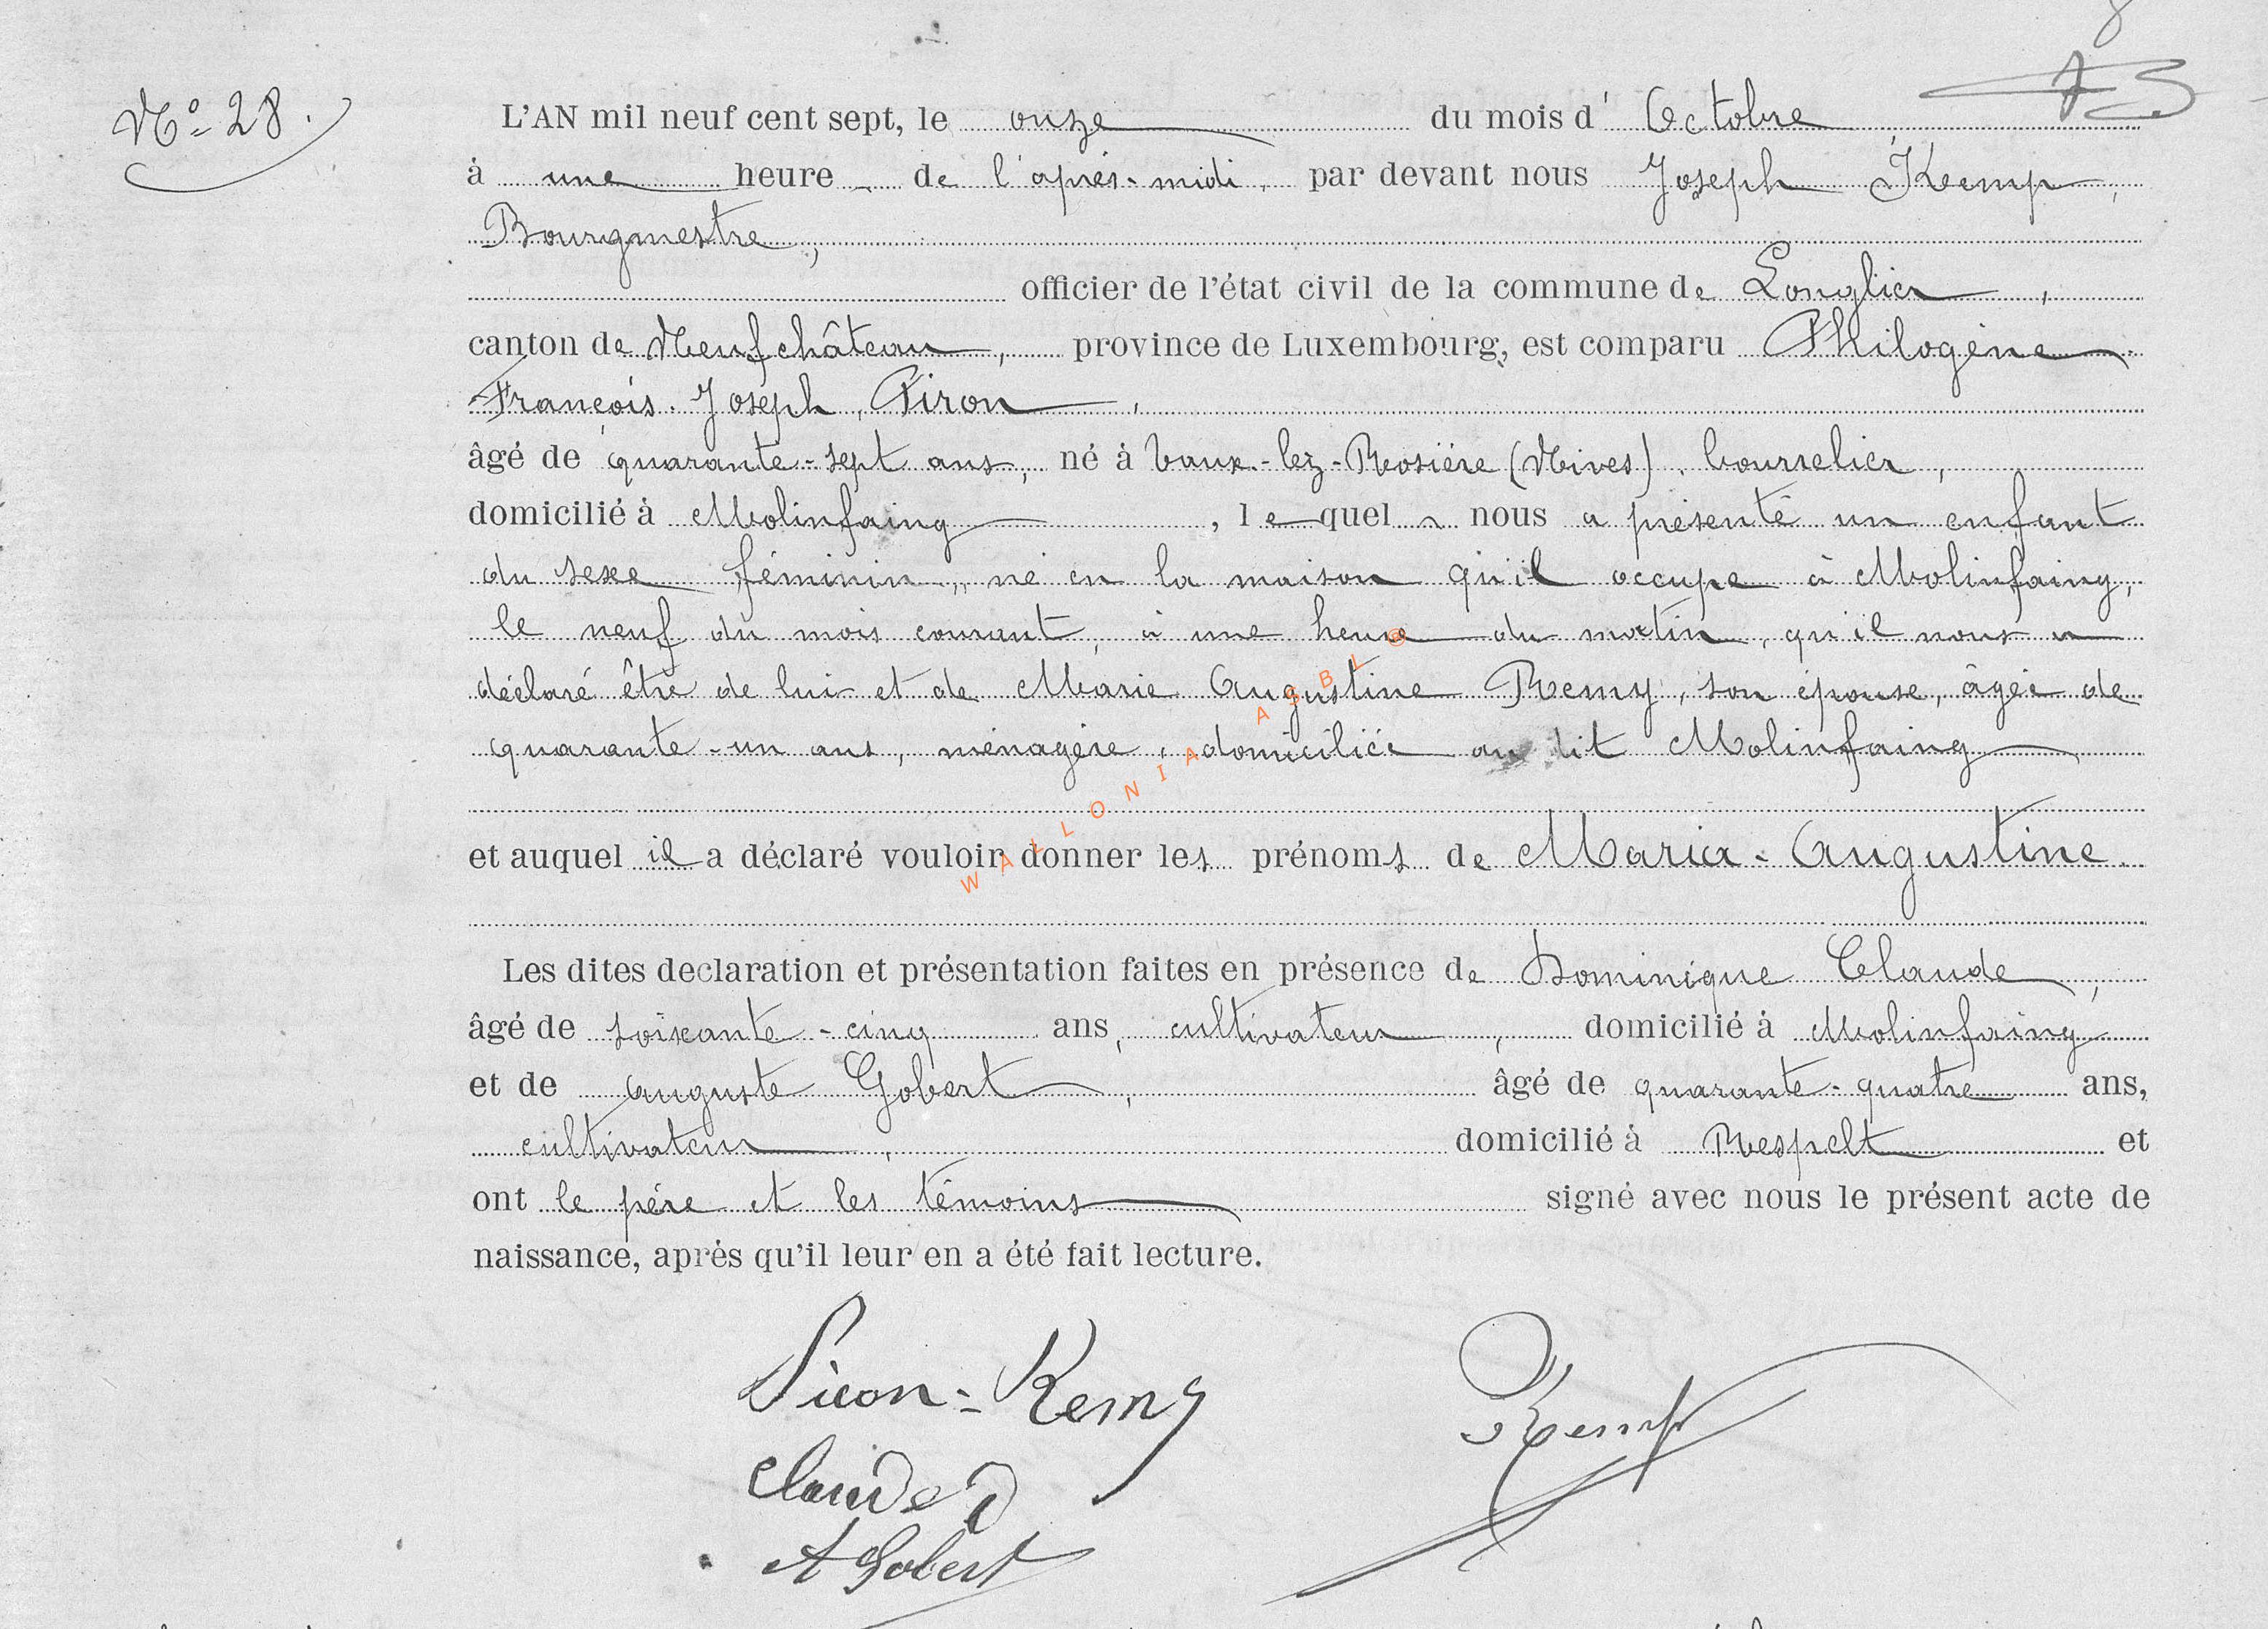 8
N° 28.
L'AN mil neuf cent sept, le onze du mois d' Octobre
à une heure de l'après-midi, par devant nous Joseph Kemp,
Bourgmestre,
officier de l'état civil de la commune de Longlier,
canton de Neufchâteau, province de Luxembourg, est comparu Philogène
François-Joseph Piron,
âgé de quarante-sept ans, né à Vaux-lez-Rosière (Nives), bourrelier,
domicilié à Molinfaing, lequel nous a présenté un enfant
du sexe féminin, né en la maison qu'il occupe à Molinfaing,
le neuf du mois courant, à une heure du matin, qu'il nous a
déclaré être de lui et de Marie Augustine Remy, son épouse, âgée de
quarante-un ans, ménagère, domiciliée au dit Molinfaing
et auquel il a déclaré vouloir donner les prénoms de Maria-Augustine.
Les dites declaration et présentation faites en présence de Dominique Claude,
âgé de soixante-cinq ans, cultivateur, domicilié à Molinfaing
et de Auguste Gobert, âgé de quarante-quatre ans,
cultivateur, domicilié à Respelt et
ont le père et les témoins signé avec nous le présent acte de
naissance, après qu'il leur en a été fait lecture.
Piron-Remy
Kemp
Claude D
A Gobert
WALLONIA ASBL ©